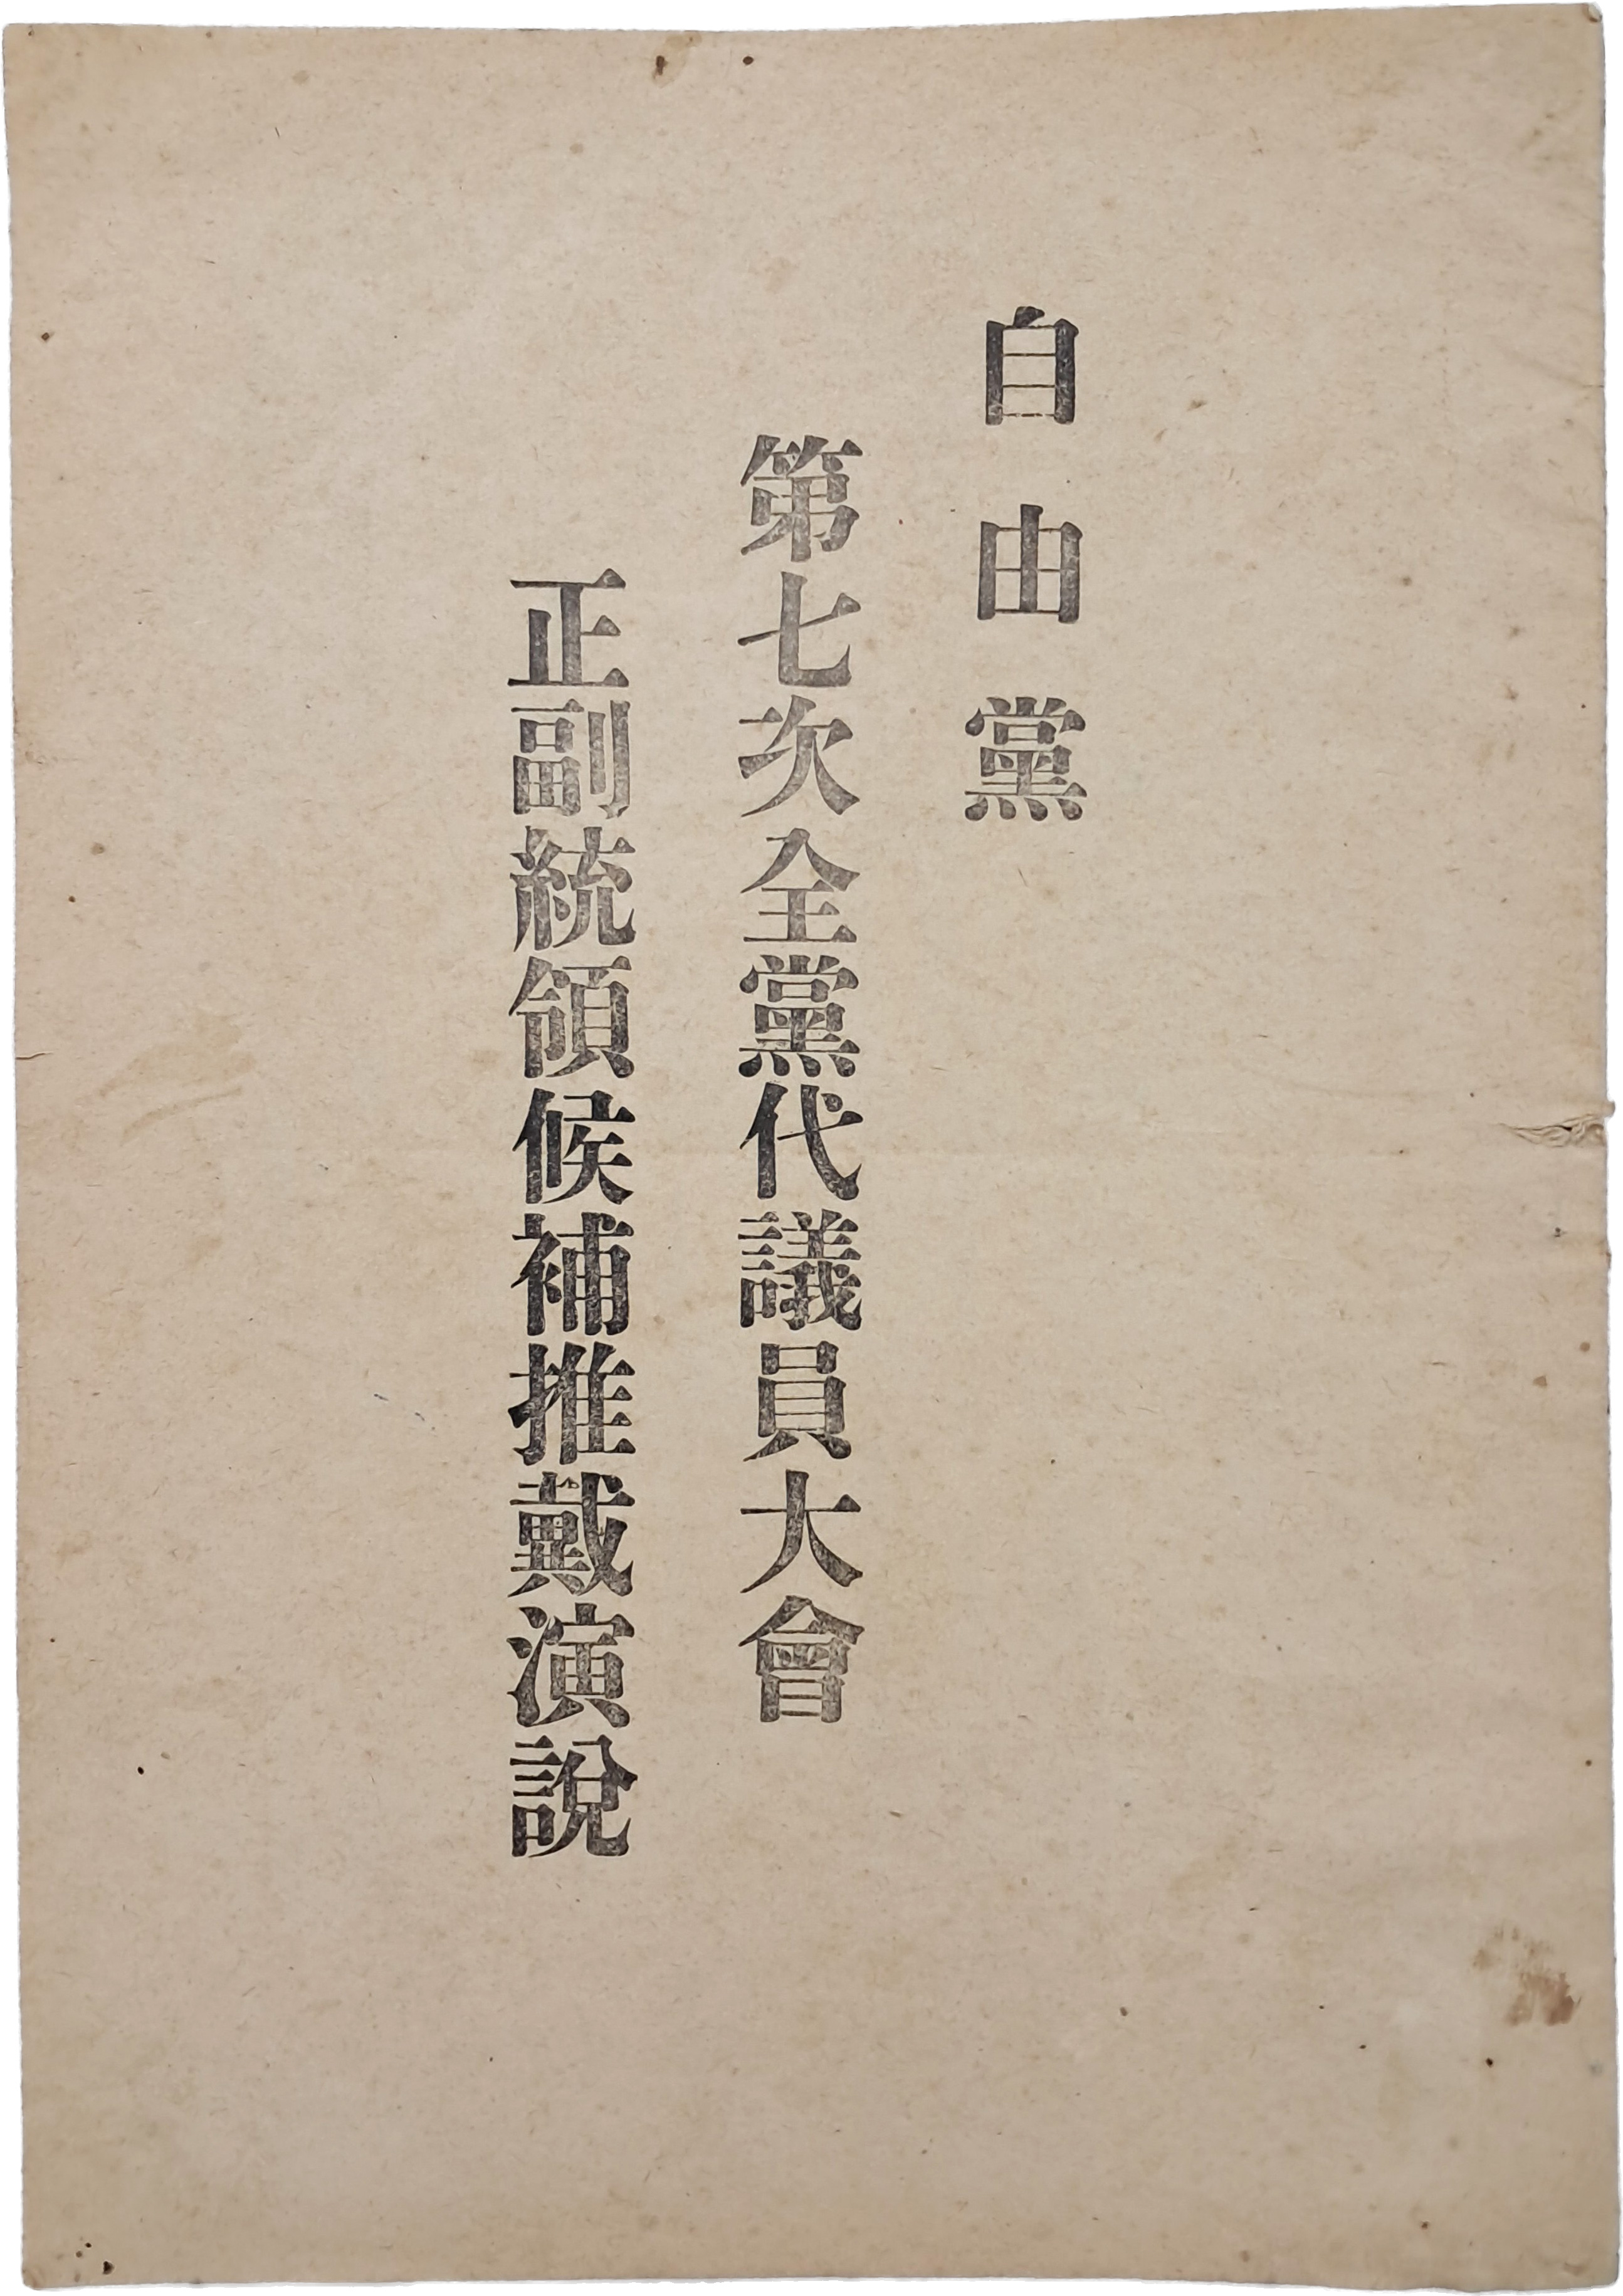 自由黨
第七次全黨代議員大會
正副統領候補推戴演說